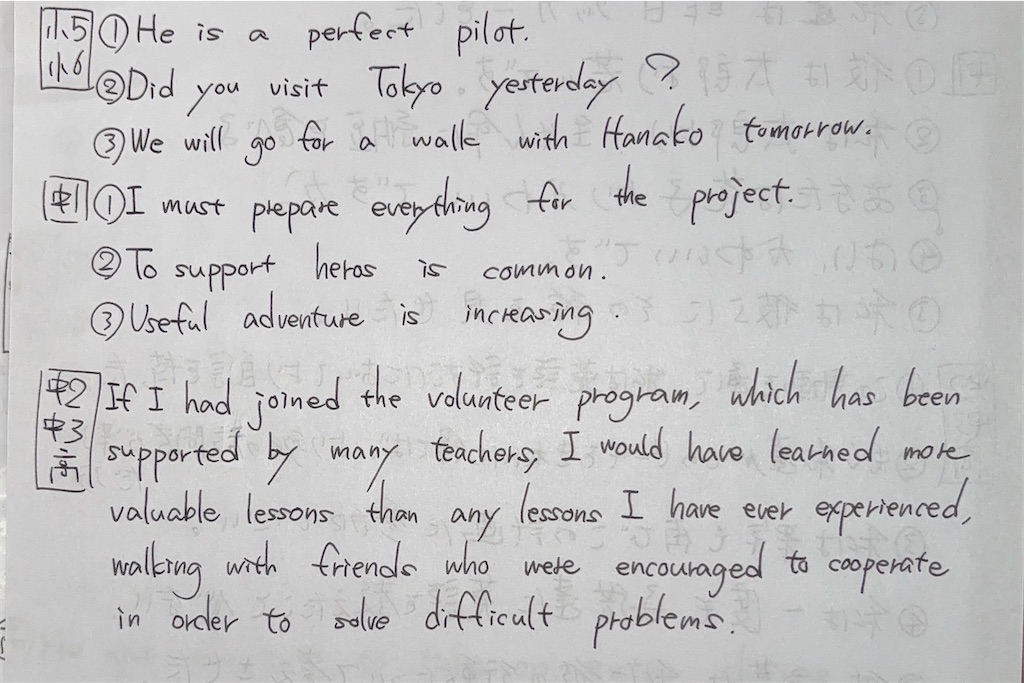 小5 ① He is a perfect pilot.
小6 ② Did you visit Tokyo yesterday?
③ We will go for a walk with Hanako tomorrow.
中1 ① I must prepare everything for the project.
② To support heros is common.
③ Useful adventure is increasing.
中2 If I had joined the volunteer program, which has been
中3 supported by many teachers, I would have learned more
高 valuable lessons than any lessons I have ever experienced,
walking with friends who were encouraged to cooperate
in order to solve difficult problems.